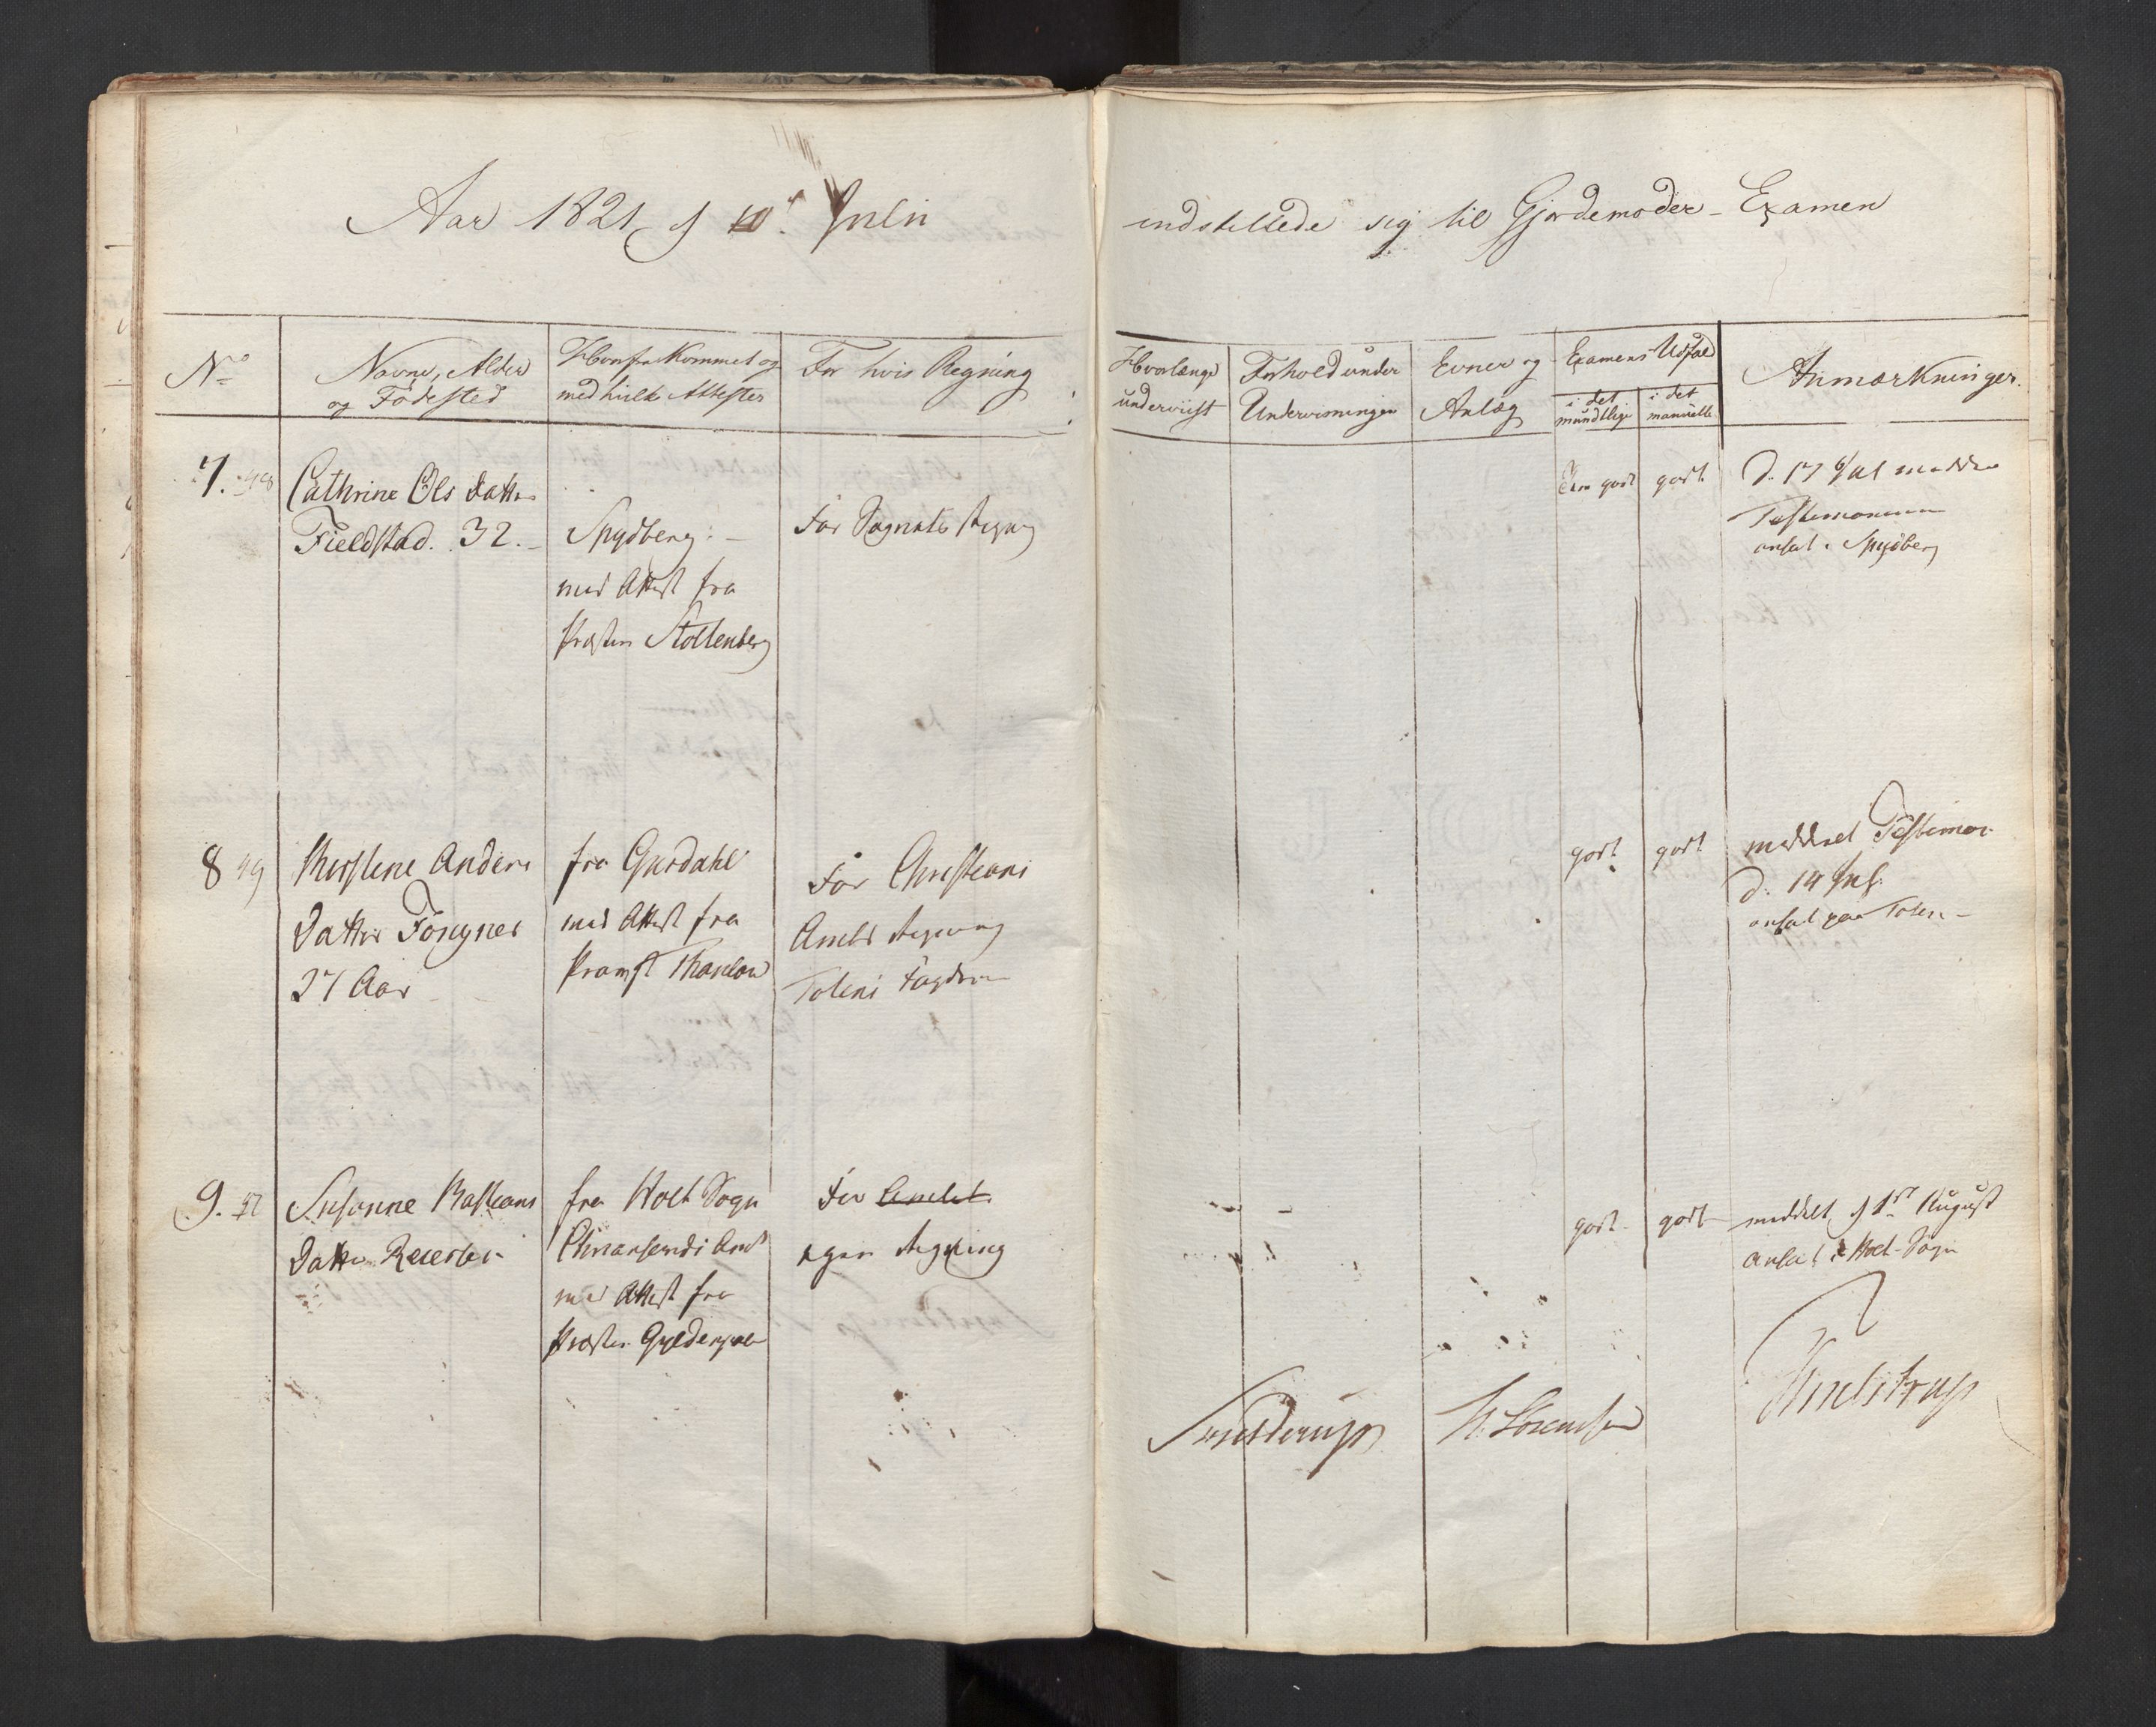 Aar 1821, d 10de Julii
indstillede sig til Gjordemoder-Examen
No
Navne, Alder
og Fødested
Hvorfra Kommet og
med hvilke Attester
For hvis Regning
Hvorlænge
underviist
Forhold under
Underviisningen
Evner og
Anlæg
Examens Udfald
i det
mundtlige
i det
manuelle
Anmærkninger.
7. 48
Cathrine Ols Datter
Fieldstad. 32.
Spydberg:
med Attest fra
Præsten Stoltenberg
For Sognets Regning
godt
godt.
d. 17 Jul meddelt
Testimonium
ansat i Spydberg
8 49
Anders
Datter
27 Aar
fra
med Attest fra
Provst Thaulow
For Christians
Amts Regning
Totens
godt
godt
meddeelt Testimon.
d. 14 Jul.
ansat paa Toten
9.
Susanne Bastians
Datter
fra Holt Sogn
med Attest fra
Præsten
For Amtets
egen Regning
godt
godt
meddelt d 1ste August
ansat i Holt-Sogn
Skjelderup
N. Sörensen
Thulstrup